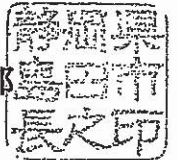 静岡県
島田市
長之印